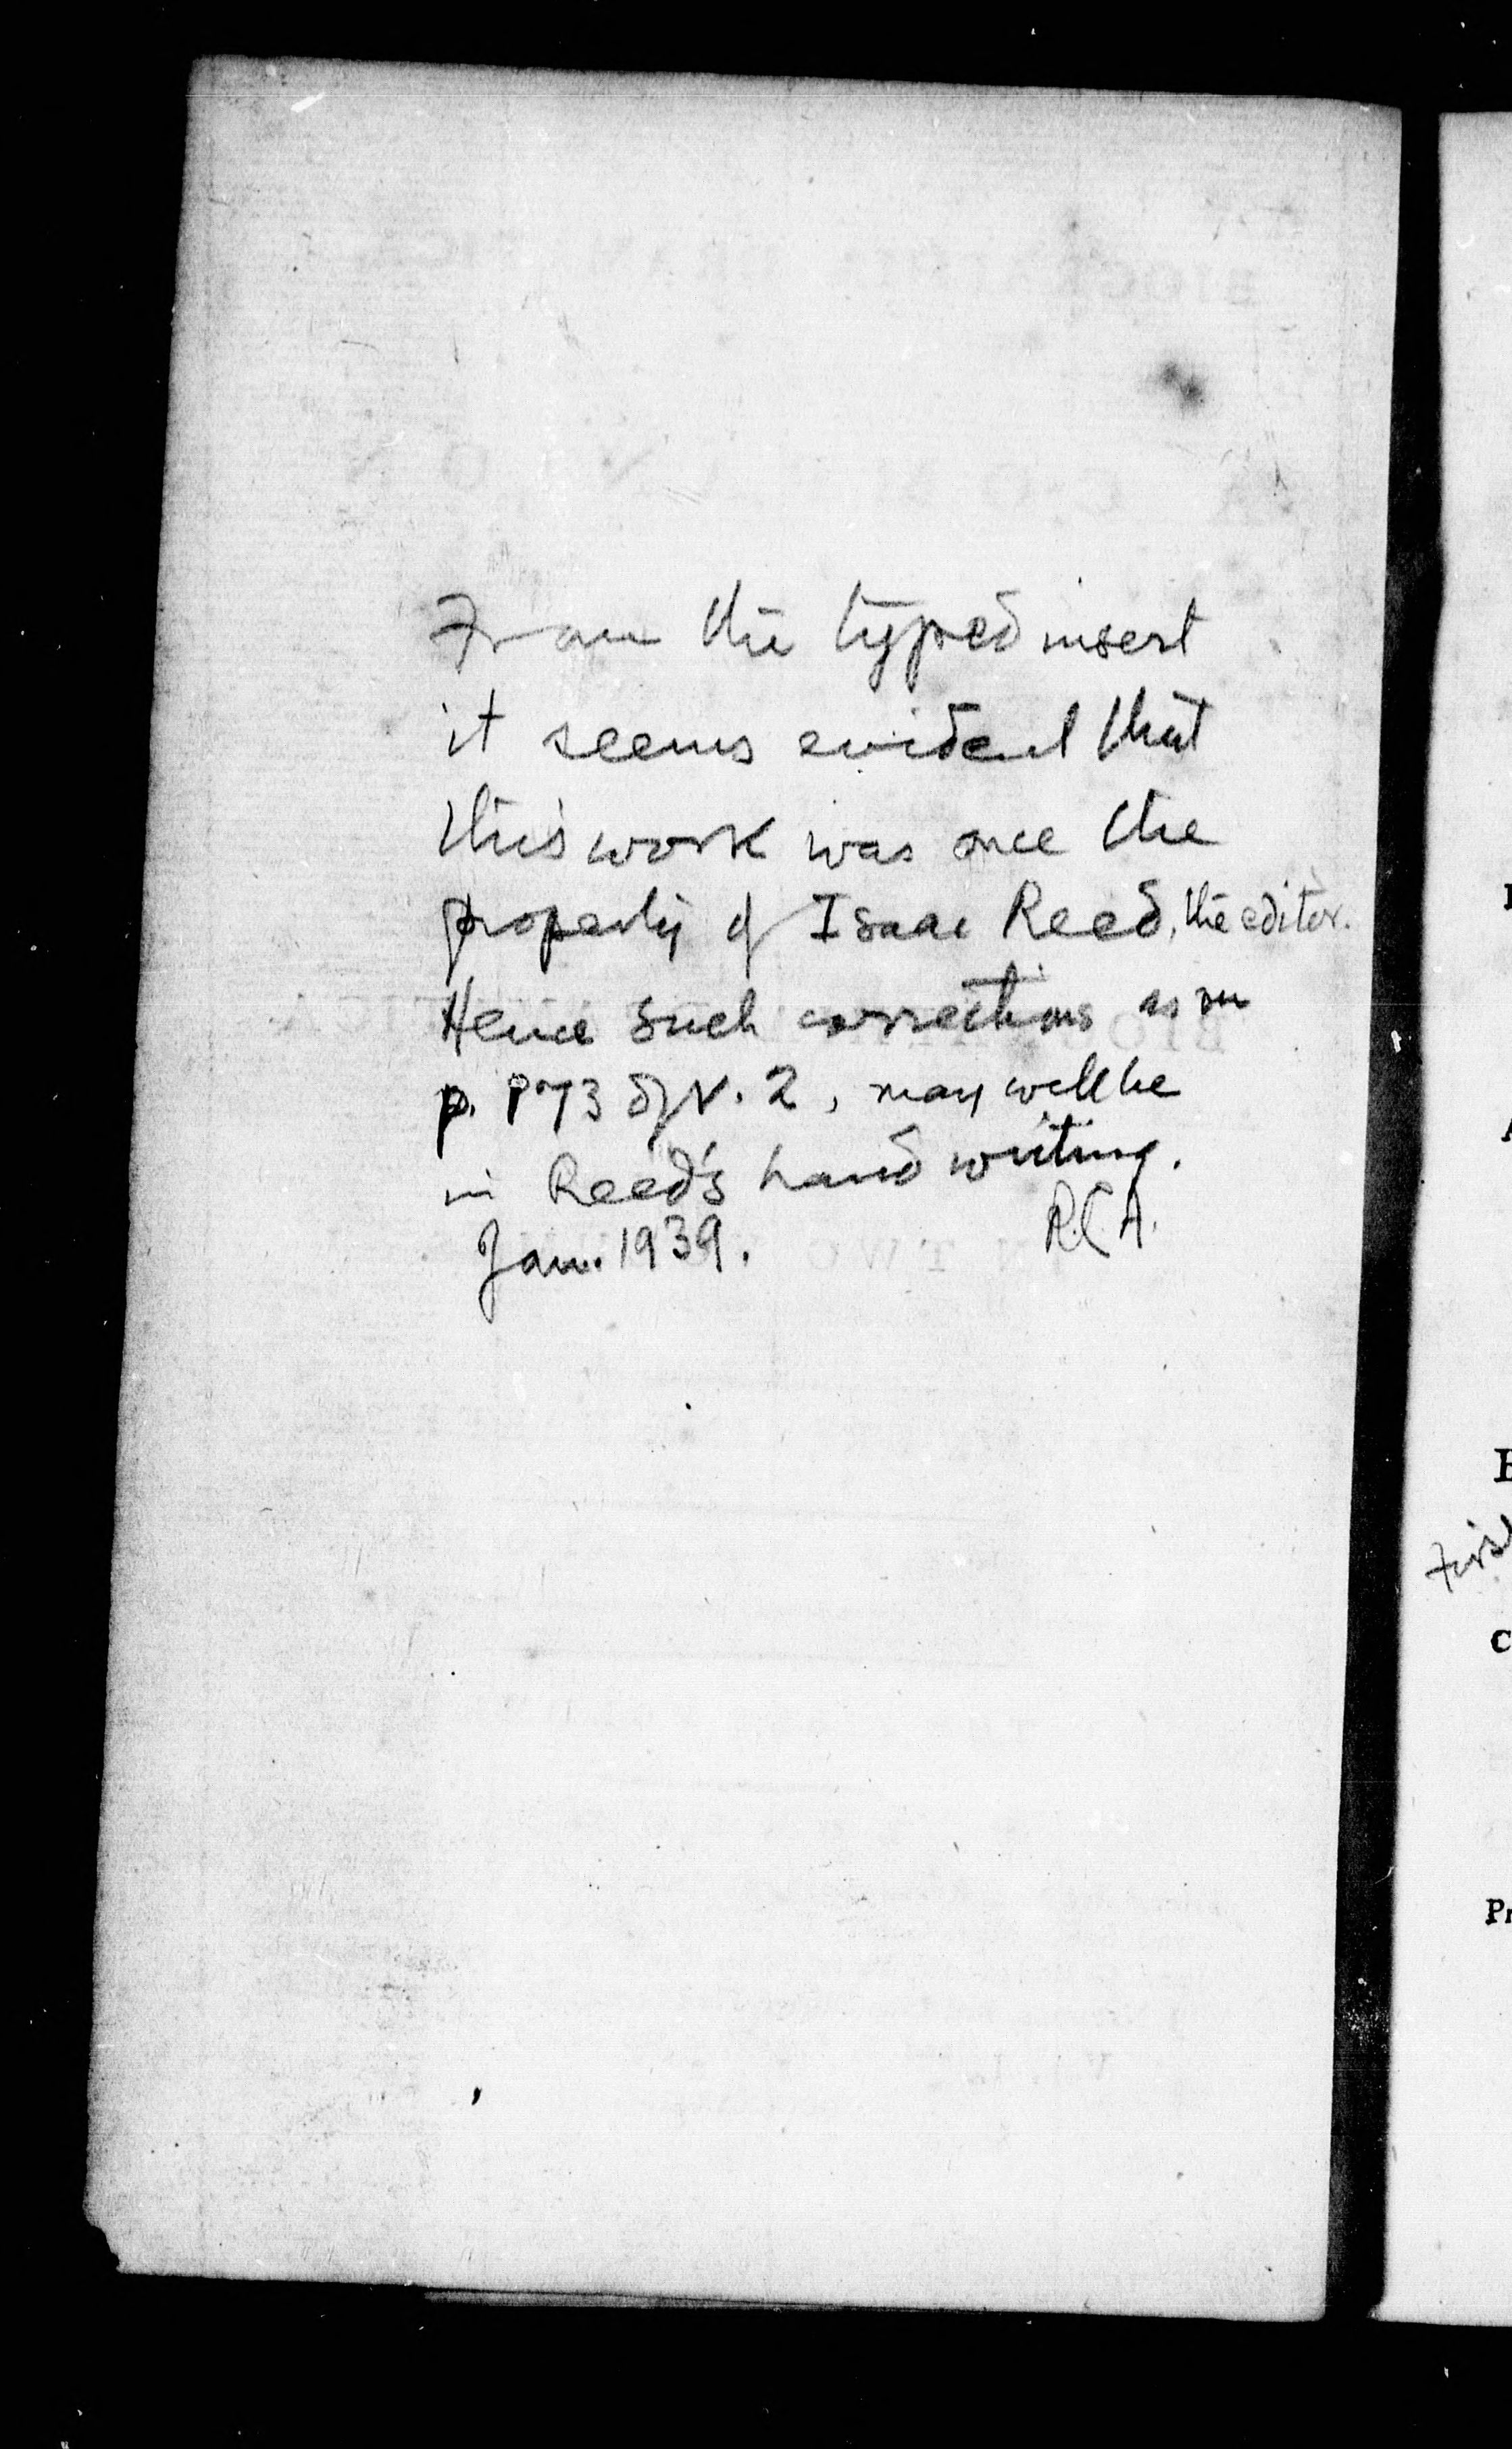 From the typed insert
it seems evident that
this work was once the
property of Isaac Reed, the editor.
Hence such corrections as on
p. 73 of V. 2, may well be
in Reed's handwriting.
Jan. 1939. R.C.A.
First
Pr